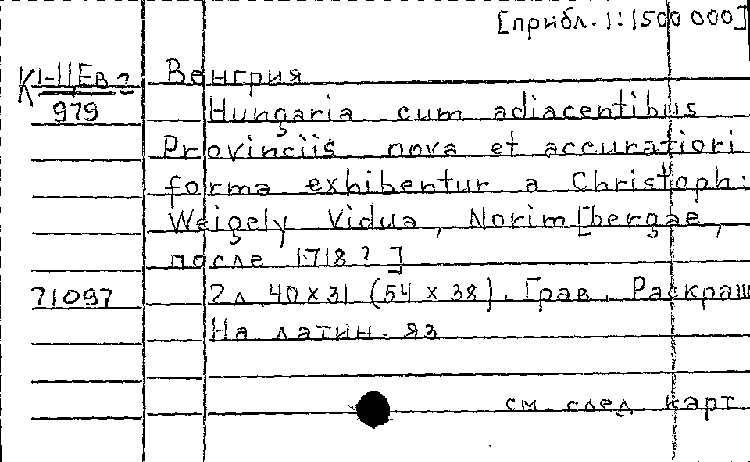 [прибл. 1:1500 000]
Венгрия
979
Hungaria cum adiacentibus
Provinciis nova et accuratiori
forma exhibentur a Christoph:
Weigely Vidua, Norim[bergae,
после 1718?]
71097 2л. 40x31 (54x38). Грав. Раскраш
На латин. яз
см. след карт